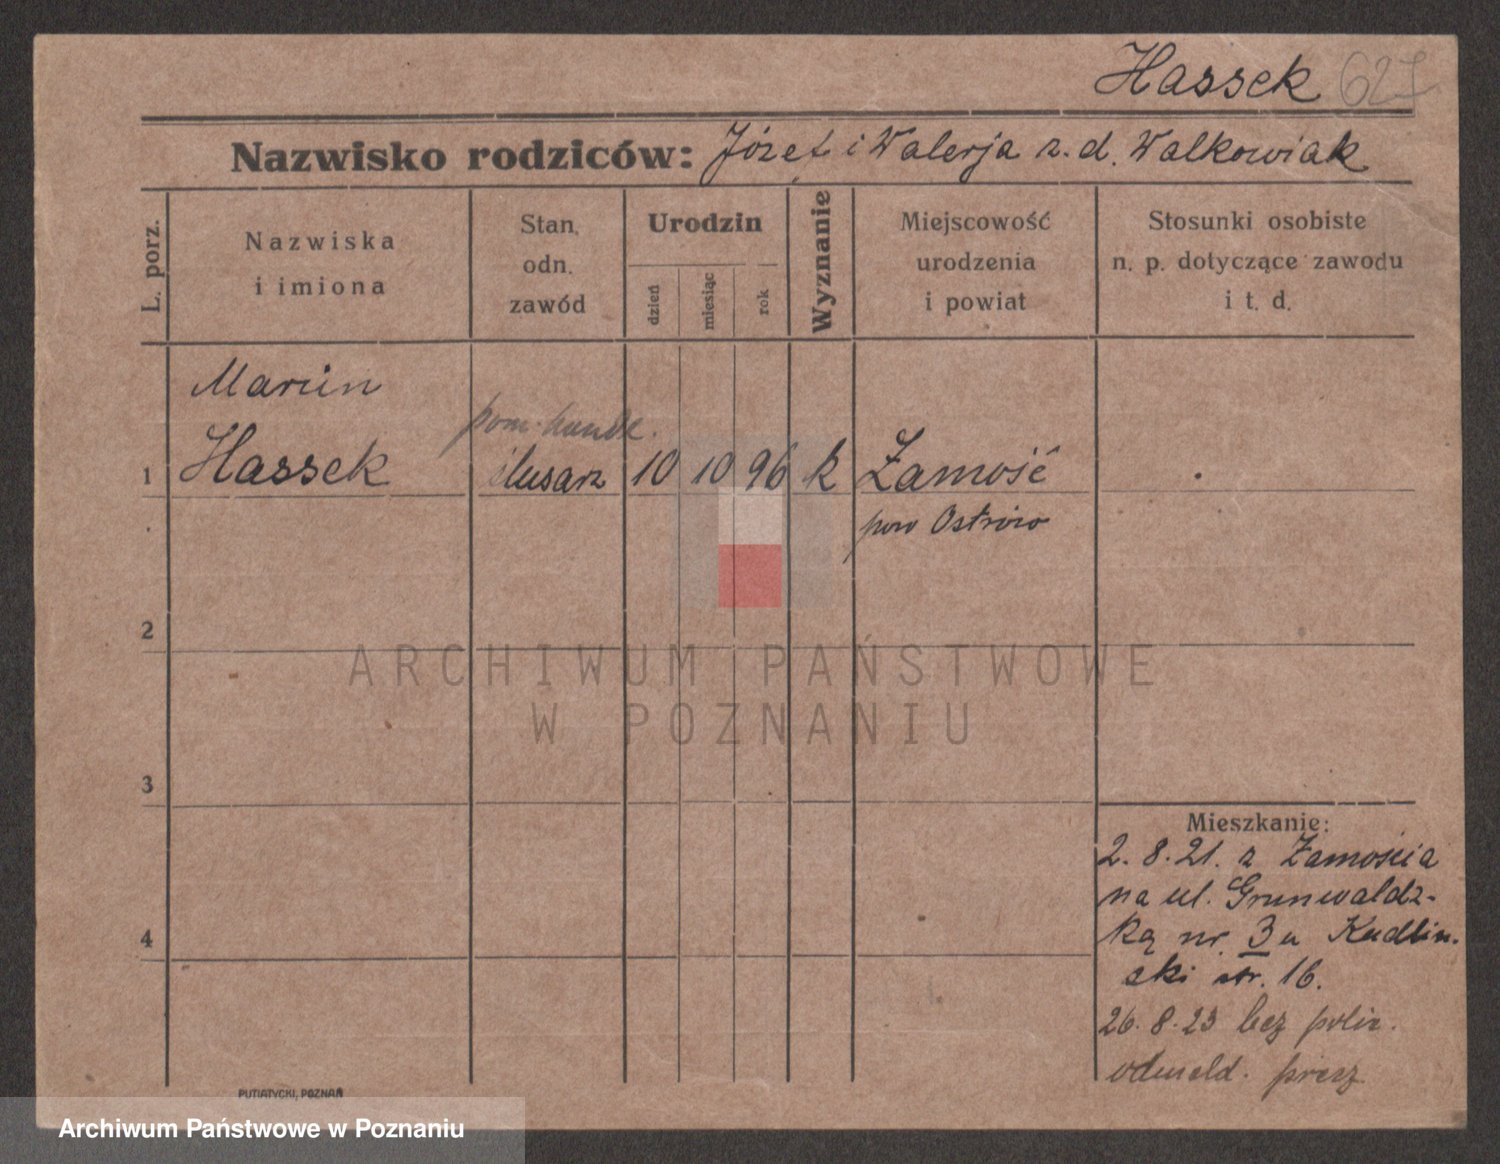 Hassek 627
Nazwisko rodziców: Józef i Walerja z.d. Walkowiak
L. porz.
Nazwiska
i imiona
Stan.
odn.
zawód
Urodzin
dzień
miesiąc
rok
Wyznanie
Miejscowość
urodzenia
i powiat
Stosunki osobiste
n. p. dotyczące zawodu
i t. d.
Marcin
pom. handl.
1 Hassek ślusarz 10 10 96 k Zamość
pow Ostrów
2
ARCHIWUM PAŃSTWOWE
W POZNANIU
3
Mieszkanie:
2. 8. 21. z Zamościa
na ul. Grunwaldz-
4
ką nr. 3 u Kudlin-
ski str. 16.
26. 8. 23 bez polic.
odmeld. przez
PUTIATYCKI, POZNAŃ
Archiwum Państwowe w Poznaniu